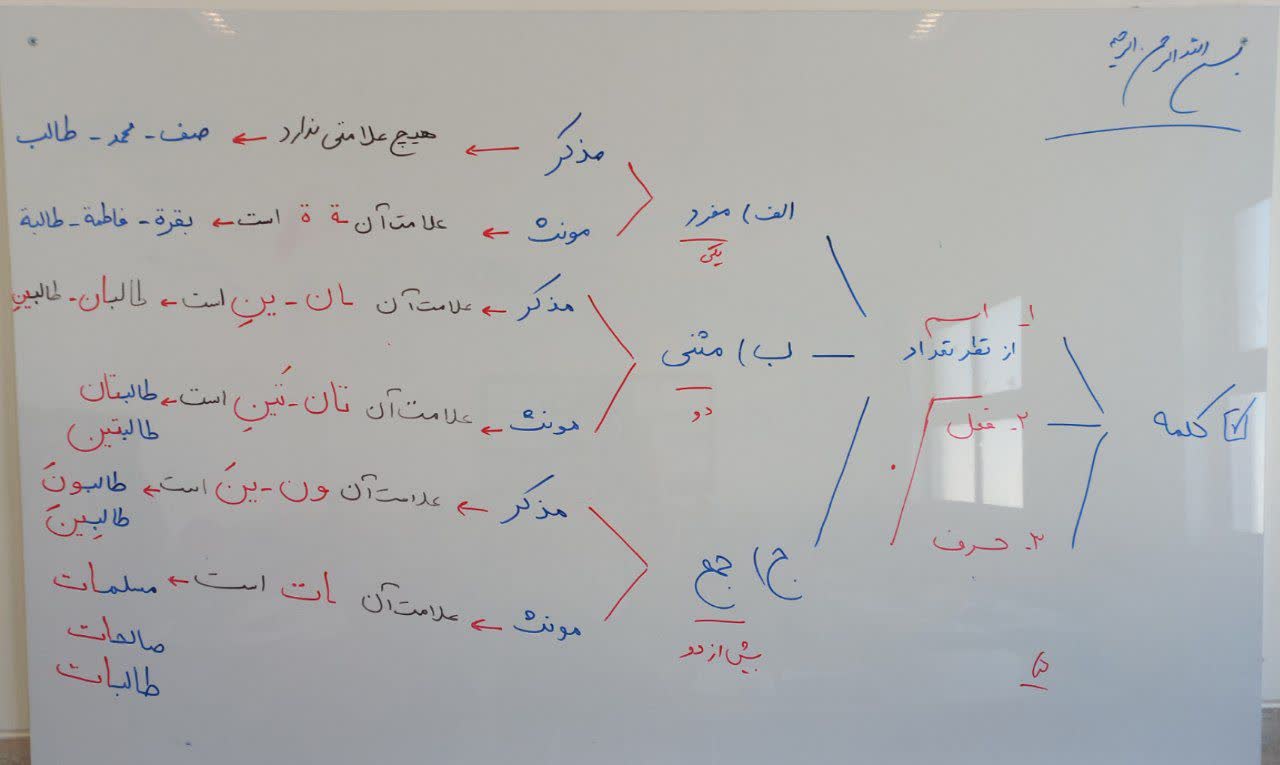 بسم الله الرحمن الرحیم
کلمه
۱_ اسم
از نظر تعداد
۲- فعل
۳- حرف
الف) مفرد
یکی
مذکر ← هیچ علامتی ندارد ← صف - محمد - طالب
مونث ← علامت آن ـة ة است ← بقرة - فاطمة - طالبة
ب) مثنی
دو
مذکر ← علامت آن ـان - ینِ است ← طالبان - طالبینِ
مونث ← علامت آن تان - تَینِ است ← طالبتان
طالبتین
ج) جمع
بیش از دو
مذکر ← علامت آن ون - ینَ است ← طالبونَ
طالبِینَ
مونث ← علامت آن ـات است ← مسلمات
صالحات
طالبات